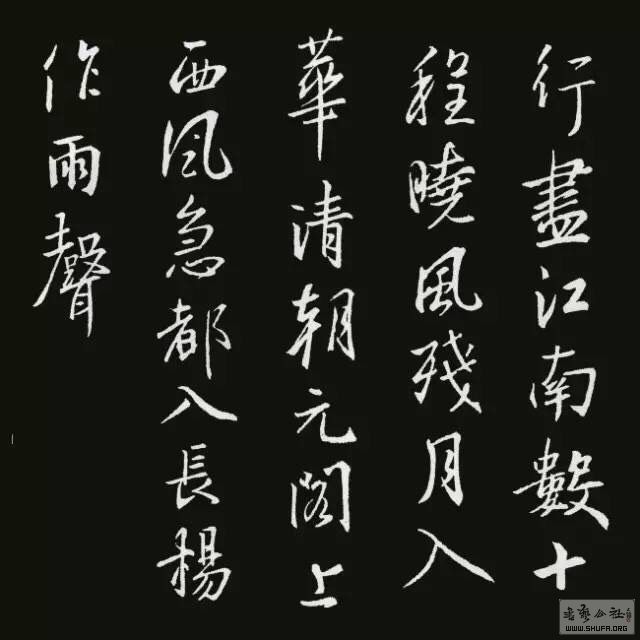 行盡江南數十
程曉風殘月入
華清朝元閣上
西风急都入長楊
作雨聲
WWW.SHUFA.ORG